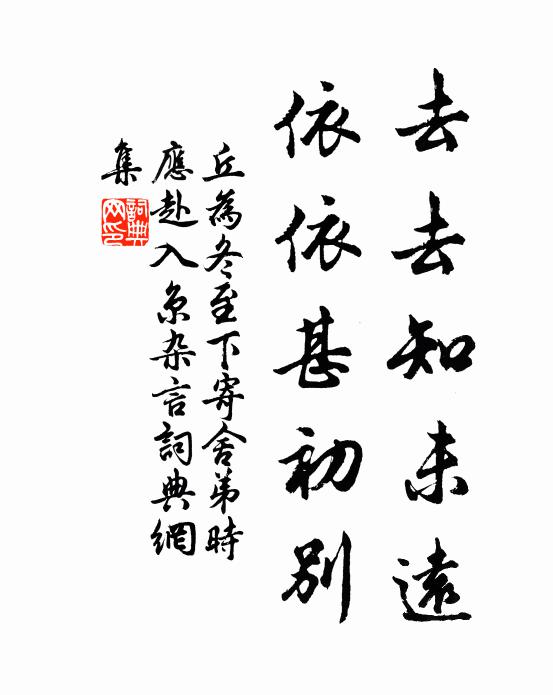 去去知未遠
依依甚初別
丘為冬至下寄舍弟時
應赴入京杂言詞典網
集
詞典
网印